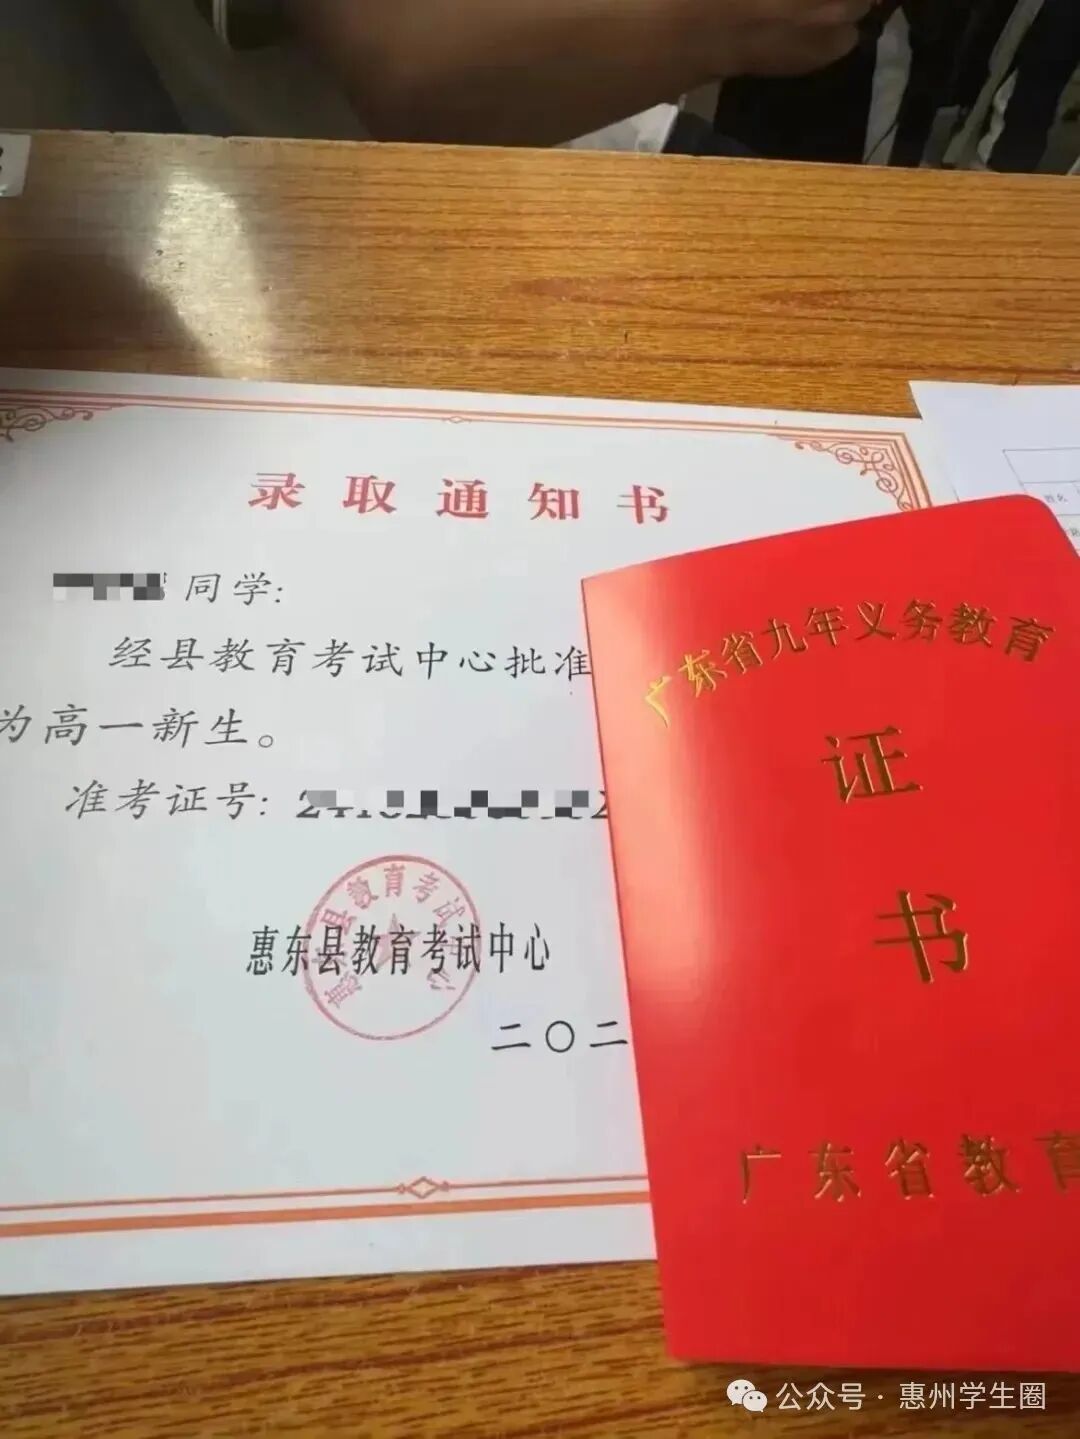 录取通知书
同学:
经县教育考试中心批准
为高一新生。
准考证号:
惠东县教育考试中心
惠东县教育考试中心
二〇二
广东省九年义务教育
证
书
广东省教育
姓名
公众号·惠州学生圈